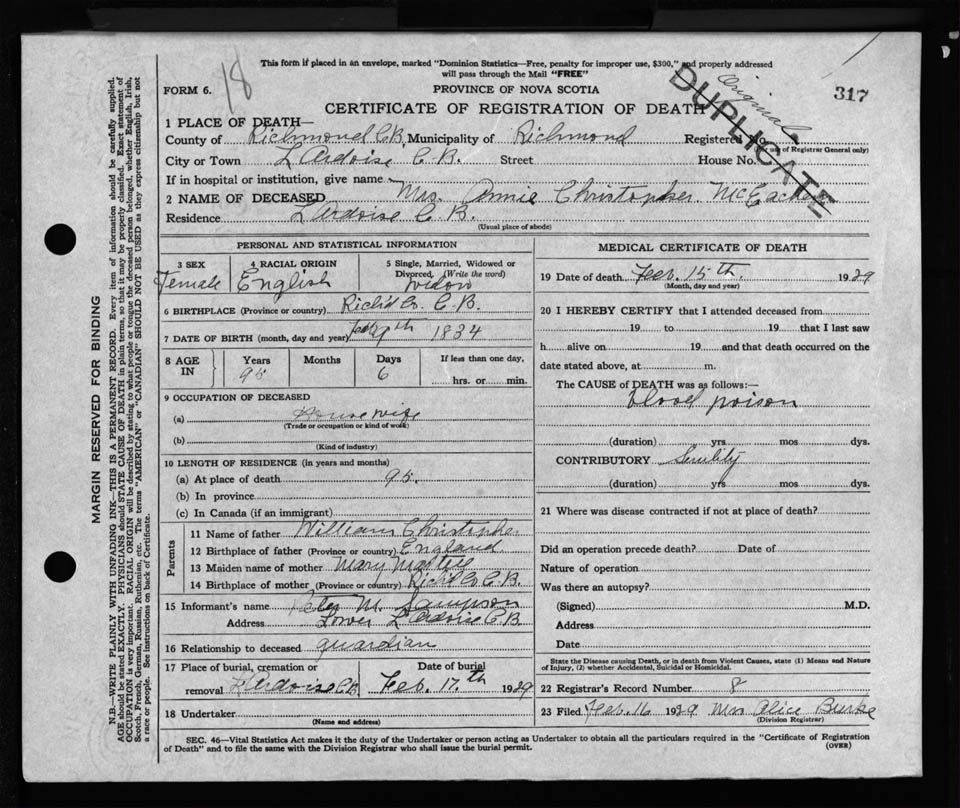 This form if placed in an envelope, marked "Dominion Statistics—Free, penalty for improper use, $300," and properly addressed
will pass through the Mail "FREE"
18
FORM 6.
PROVINCE OF NOVA SCOTIA
317
CERTIFICATE OF REGISTRATION OF DEATH
DUPLICATE
Original
1 PLACE OF DEATH—
County of Richmond C.B. Municipality of Richmond Registered No.
(For use of Registrar General only)
City or Town L'Ardoise C.B. Street House No.
If in hospital or institution, give name
2 NAME OF DECEASED Mrs. Annie Christopher McEachern
Residence L'Ardoise C.B.
(Usual place of abode)
PERSONAL AND STATISTICAL INFORMATION
3 SEX
Female
4 RACIAL ORIGIN
English
5 Single, Married, Widowed or
Divorced, (Write the word)
widow
6 BIRTHPLACE (Province or country) Rich'd Co. C.B.
7 DATE OF BIRTH (month, day and year) 1834
8 AGE IN
Years Months Days If less than one day,
95 6 hrs. or min.
9 OCCUPATION OF DECEASED
(a) House wife
(Trade or occupation or kind of work)
(b)
(Kind of industry)
10 LENGTH OF RESIDENCE (in years and months)
(a) At place of death 95.
(b) In province
(c) In Canada (if an immigrant)
Parents
11 Name of father William Christopher
12 Birthplace of father (Province or country) England
13 Maiden name of mother Mary
14 Birthplace of mother (Province or country) Rich'd Co. C.B.
15 Informant's name Peter M. Sampson
Address Lower L'Ardoise C.B.
16 Relationship to deceased guardian
17 Place of burial, cremation or Date of burial
removal L'Ardoise C.B. Feb. 17.th 1929
18 Undertaker
(Name and address)
MEDICAL CERTIFICATE OF DEATH
19 Date of death Feb. 15th. 1929
(Month, day and year)
20 I HEREBY CERTIFY that I attended deceased from
19 to 19 that I last saw
h alive on 19 and that death occurred on the
date stated above, at m.
The CAUSE of DEATH was as follows:—
blood poison
(duration) yrs. mos. dys.
CONTRIBUTORY Senility
(duration) yrs mos. dys.
21 Where was disease contracted if not at place of death?
Did an operation precede death? Date of
Nature of operation
Was there an autopsy?
(Signed) M.D.
Address
Date
State the Disease causing Death, or in death from Violent Causes, state (1) Means and Nature
of Injury, (2) whether Accidental, Suicidal or Homicidal.
22 Registrar's Record Number 8
23 Filed Feb. 16 1929 Mrs Alice Burke
(Division Registrar)
SEC. 46—Vital Statistics Act makes it the duty of the Undertaker or person acting as Undertaker to obtain all the particulars required in the "Certificate of Registration
of Death" and to file the same with the Division Registrar who shall issue the burial permit.
(OVER)
MARGIN RESERVED FOR BINDING
N.B.—WRITE PLAINLY WITH UNFADING INK—THIS IS A PERMANENT RECORD. Every item of information should be carefully supplied.
AGE should be stated EXACTLY. PHYSICIANS should STATE CAUSE OF DEATH in plain terms, so that it may be properly classified. Exact statement of
OCCUPATION is very important. RACIAL ORIGIN will be described by stating to what people or tongue the deceased person belonged, whether English, Irish,
Scotch, French, German, Russian, Ruthenian, etc. The terms "AMERICAN" or "CANADIAN" SHOULD NOT BE USED as they express citizenship but not
a race or people. See instructions on back of Certificate.